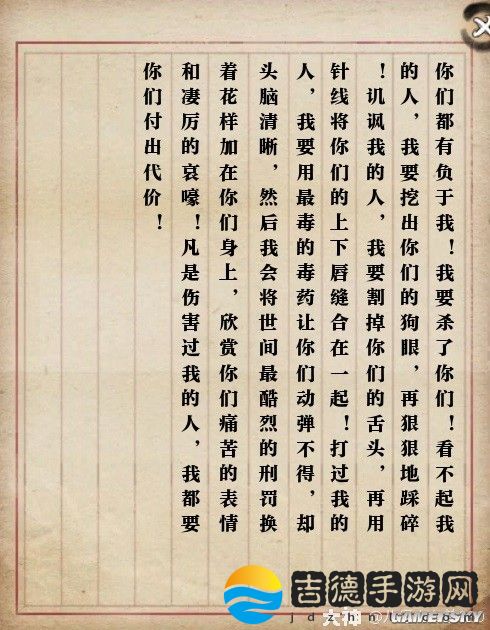 你们都有负于我！我要杀了你们！看不起我
的人，我要挖出你们的狗眼，再狠狠地踩碎
！讥讽我的人，我要割掉你们的舌头，再用
针线将你们的上下唇缝合在一起！打过我的
人，我要用最毒的毒药让你们动弹不得，却
头脑清晰，然后我会将世间最酷烈的刑罚换
着花样加在你们身上，欣赏你们痛苦的表情
和凄厉的哀嚎！凡是伤害过我的人，我都要
你们付出代价！
吉德手游网
大神
GAMERSKY